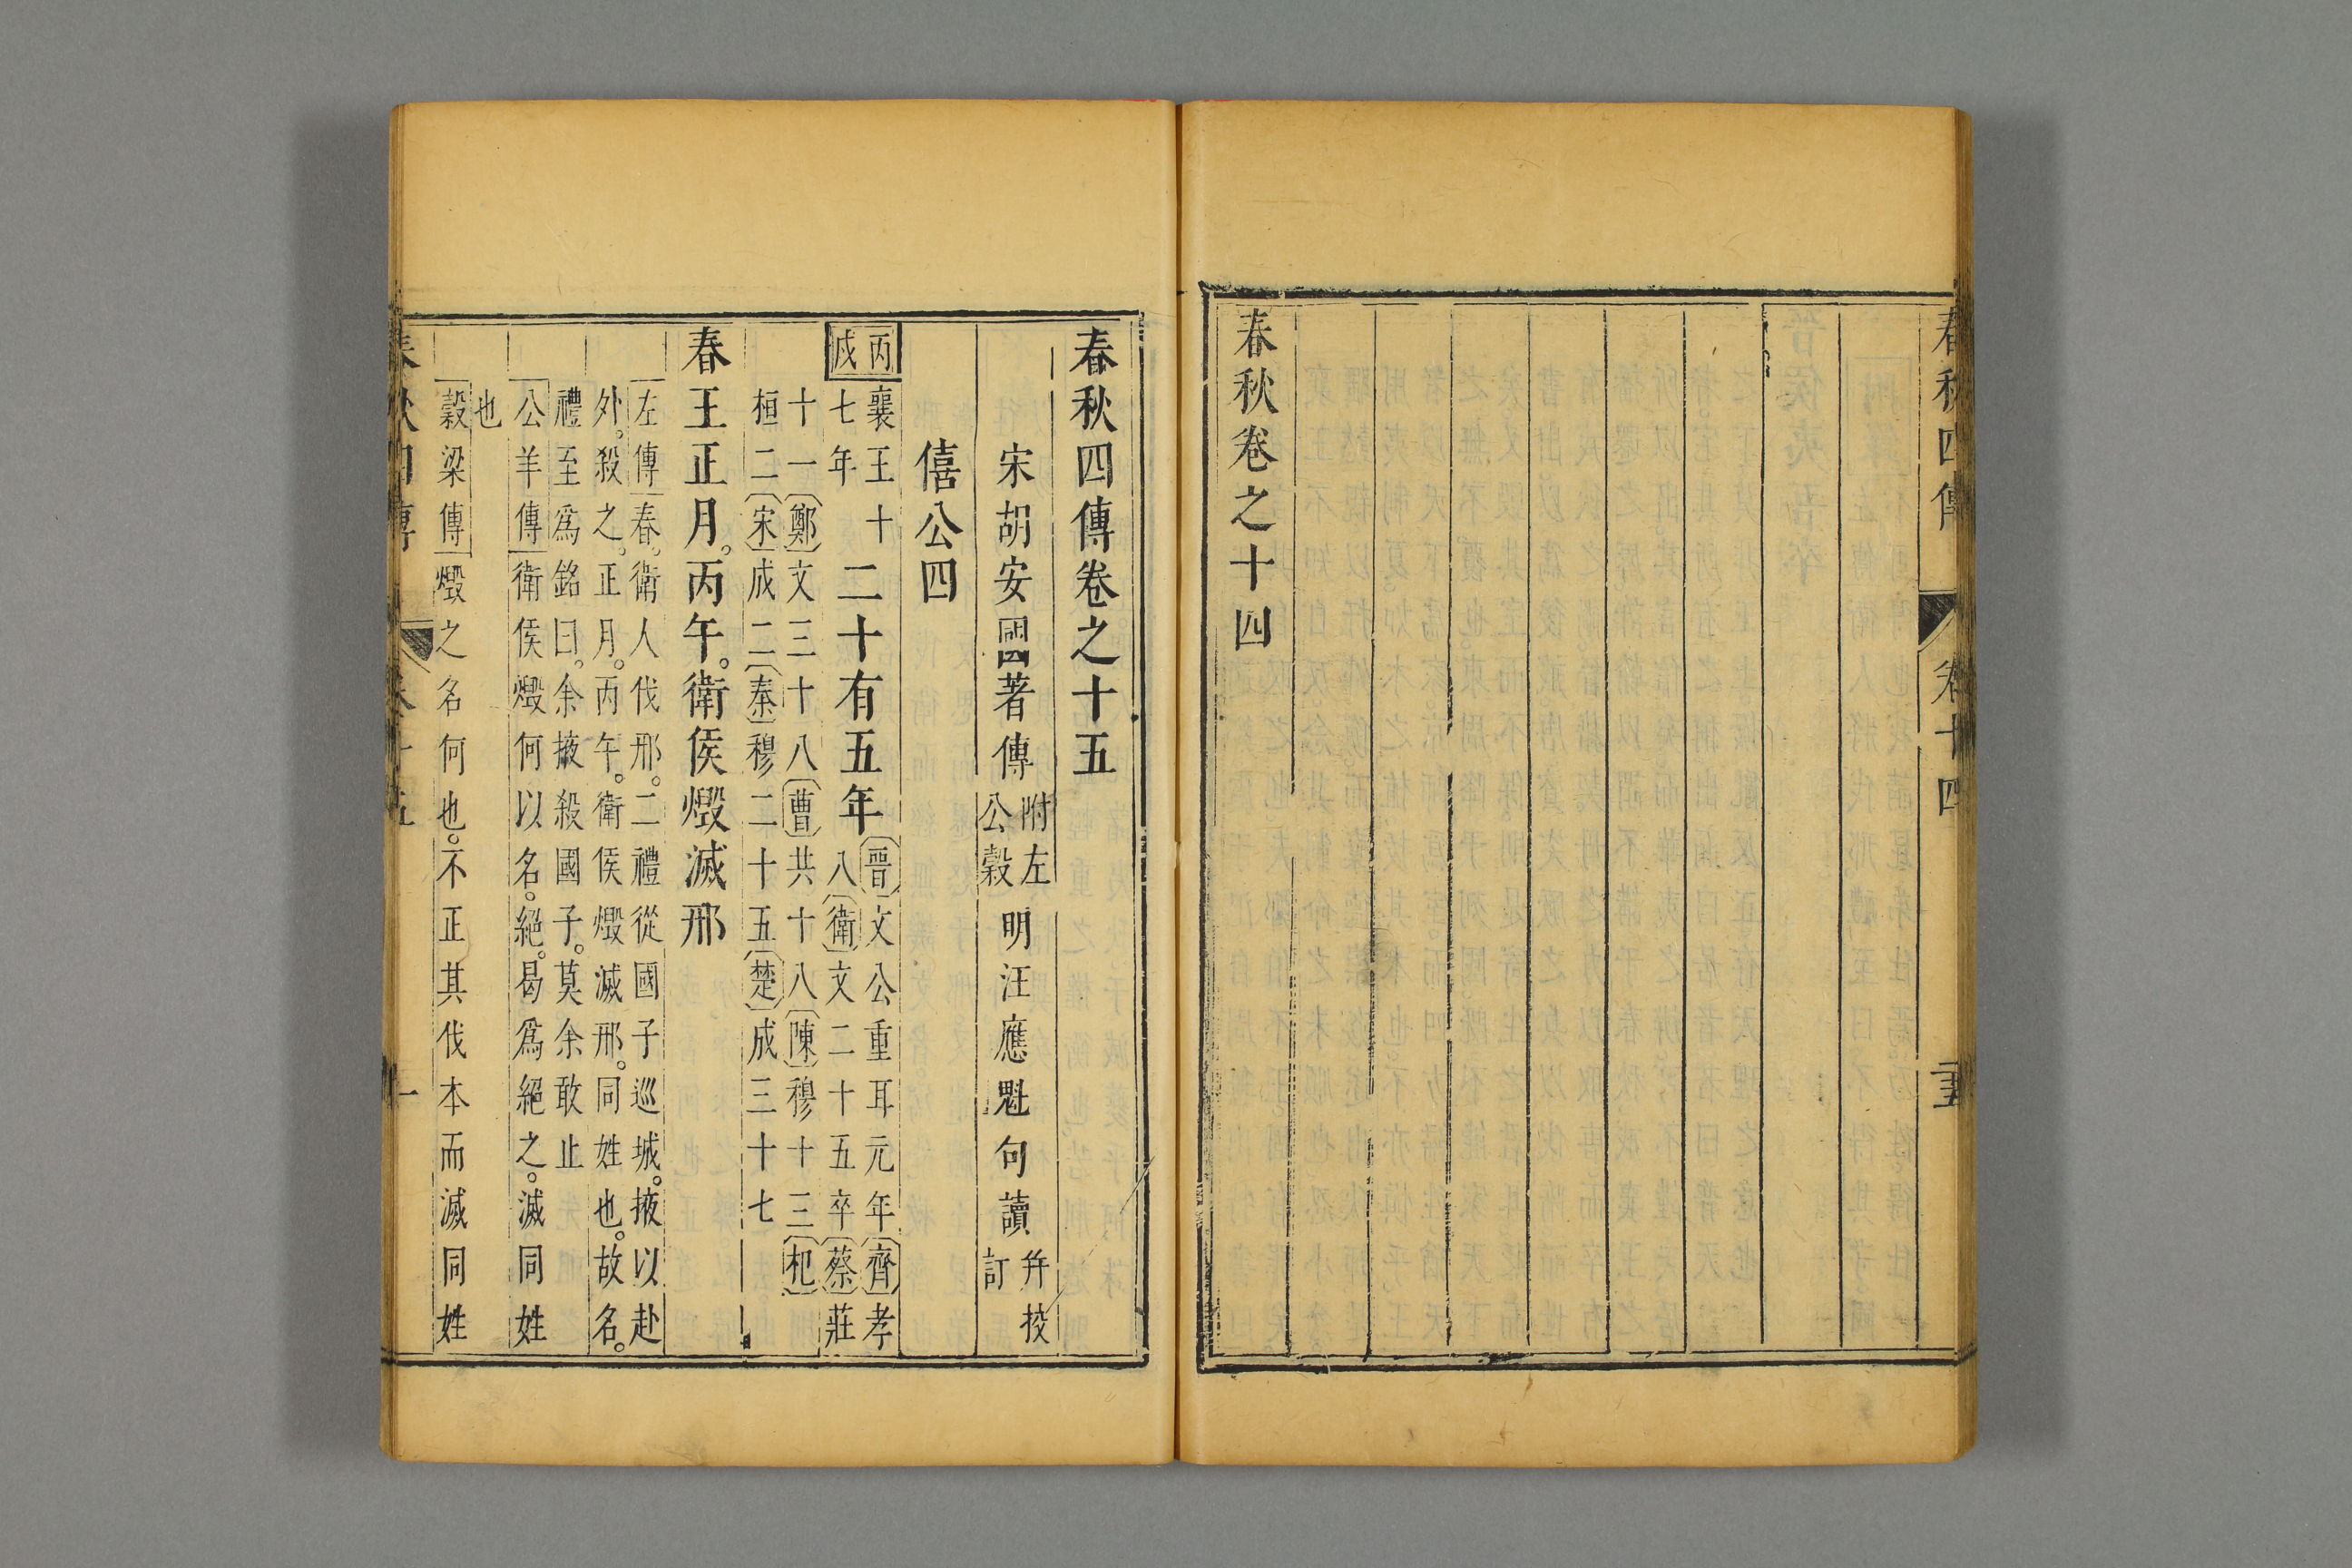 春秋四傳
卷十四
春秋卷之十四
春秋四傳卷之十五
宋胡安國著傳附左公穀明汪應魁句讀并挍訂
僖公四
丙戌襄王十七年二十有五年晉文公重耳元年齊孝
八衛文二十五卒蔡莊
十一鄭文三十八曹共十八陳穆十三杞
桓二宋成二秦穆二十五楚成三十七
春王正月。丙午。衛侯燬滅邢
左傳春。衛人伐邢。二禮從國子巡城。掖以赴
外。殺之。正月。丙午。衛侯燬滅邢。同姓也。故名。
禮至爲銘曰。余掖殺國子。莫余敢止
公羊傳衛侯燬何以名。絕。曷爲絕之。滅同姓
也
穀梁傳燬之名何也。不正其伐本而滅同姓
春秋四傳
卷十五
一